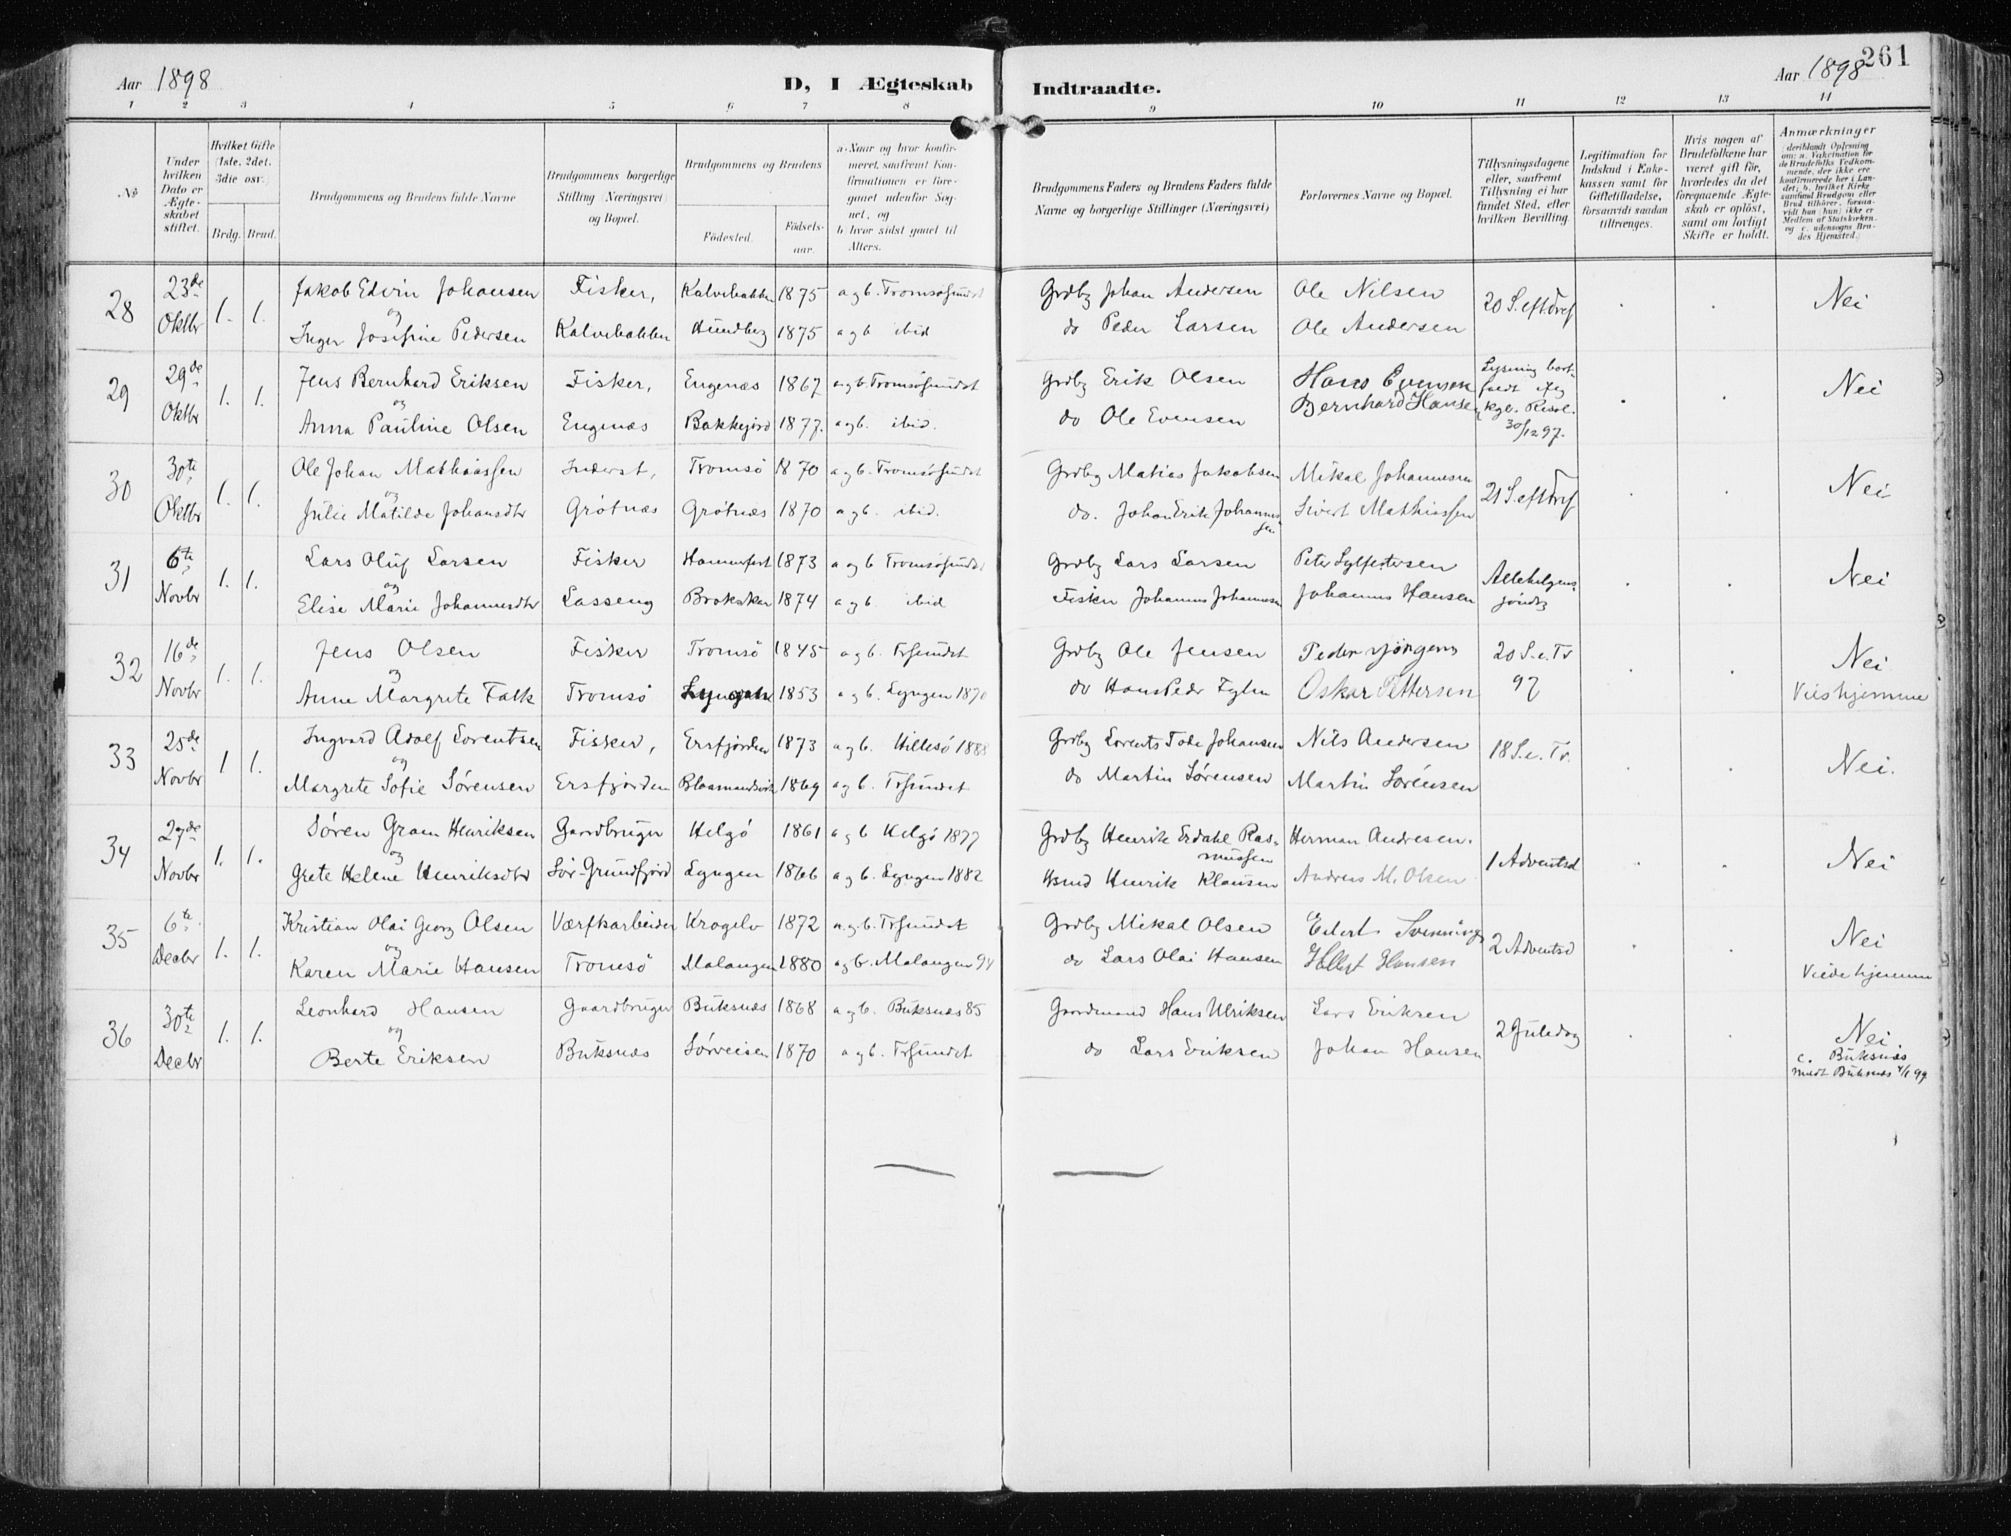 Aar 1898
D, I Ægteskab Indtraadte.
Aar 1898
261
1 2 3 4 5 6 7 8 9 10 11 12 13 14
No
Under hvilken Dato er Ægteskabet stiftet.
Hvilket Gifte (1ste, 2det, 3die osv.)
Brdg. Brud.
Brudgommens og Brudens fulde Navne
Brudgommens borgerlige Stilling (Næringsvei) og Bopæl.
Brudgommens og Brudens
Fødested.
Fødsels-aar.
a. Naar og hvor konfirmeret, saafremt Konfirmationen er foregaaet udenfor Sognet, og b. hvor sidst gaaet til Alters.
Brudgommens Faders og Brudens Faders fulde Navne og borgerlige Stillinger (Næringsvei)
Forlovernes Navne og Bopæl.
Tillysningsdagene eller, saafremt Tillysning ei har fundet Sted, efter hvilken Bevilling.
Legitimation for Indskud i Enkekassen samt for Giftetilladelse, forsaavidt saadan tiltrænges.
Hvis nogen af Brudefolkene har været gift før, hvorledes da det foregaaende Ægteskab er opløst, samt om lovligt Skifte er holdt.
Anmærkninger (deriblandt Oplysning om: a. Vakcination for de Brudefolks Vedkommende, der ikke ere konfirmerede her i Landet; b. hvilket Kirkesamfund Brudgom eller Brud tilhører, forsaavidt han (hun) ikke er Medlem af Statskirken, og c. udensogns Brudes Hjemsted.)
28 23de Oktbr 1. 1. Jakob Edvin Johansen Fisker, Kalvebakken 1875 a og b. Tromsøsundet Grdbg Johan Andersen Ole Nilsen 20 S. eft Tref Nei
og
Inger Josefine Pedersen Kalvebakken Sundbeg 1875 a og b ibid do Peder Larsen Ole Andersen
29 29de Oktbr 1. 1. Jens Bernhard Eriksen Fisker, Engenæs 1867 a og b Tromsøsundet Grdbg Erik Olsen Hans Evensen Lysning bortfaldt kgl. Resol. 30/12 97. Nei
og
Anna Pauline Olsen Engenæs Bakkejord 1877. a og b. ibid. do Ole Evensen Bernhard Hansen
30 30te Oktbr 1. 1. Ole Johan Mathiassen Inderst, Tromsø 1870 a og b. Tromsøsundet Grdbg Matias Jakobsen Mikal Johannesen 21 S. eft Tref Nei
og
Julie Matilde Johansdtr Grøtnæs Grøtnæs 1870 a og b. ibid. do. Johan Erik Johannessen Sivert Mathiassen
31 6te Novbr 1. 1. Lars Oluf Larsen Fisker Hammerfest 1873 a og b Tromsøsundet Grdbg Lars Larsen Peter Sylfestersen Allehelgens søndag Nei
og
Elise Marie Johannesdtr Lasseng Brokskar 1874 a og b. ibid Fisker Johannes Johannesen Johannes Hansen
32 16de Novbr 1. 1. Jens Olsen Fisker Tromsø 1845 a og b. Trsundet Grdbg Ole Jensen Peder Jörgens 20 S. e. Tr 97 Nei
og
Anne Margrete Falk Tromsø Lyngen 1853 a og b. Lyngen 1870 do Hans Peder Oskar Pettersen Viet hjemme
33 25de Novbr 1 1. Ingvard Adolf Lorentsen Fisker, Ersfjorden 1873 a og b. Hillesø 1888 Grdbg Lorents Tode Johansen Nils Andersen 18 S. e. Tr. Nei.
og
Margrete Sofie Sørensen Ersfjorden Blaamandsvik 1869 a og b. Trsundet do Martin Sørensen Martin Sørensen
34 27de Novbr 1. 1. Søren Gram Henriksen Gaardbruger Helgø 1861 a og b Helgø 1877 Grdbg Henrik Erdahl Rasmussen Herman Andresen. 1 Adventsd Nei
og
Grete Helene Henriksdtr Sør-Grundfjord Lyngen 1866 a og b. Lyngen 1882 Henrik Klausen Andreas M. Olsen
35 6te Decbr 1. 1. Kristian Olai Georg Olsen Værftsarbeider Krogelv 1872 a og b. Trsundet Grdbg Mikal Olsen Edert Svenning 2 Adventsd Nei
og
Karen Marie Hansen Tromsø Malangen 1880 a og b. Malangen 94 do Lars Olai Hansen Hansen Viede hjemme
36 30te Decbr 1. 1. Leonhard Hansen Gaardbruger Buksnæs 1868 a og b. Buksnæs 85 Gaardmand Hans Ulriksen Lars Eriksen 2 Juledag Nei.
og
Berte Eriksen Buksnæs Sørveisen 1870 a og b. Trsundet do Lars Eriksen Johan Hansen c. Buksnæs
meldt Buksnæs 4/1 99